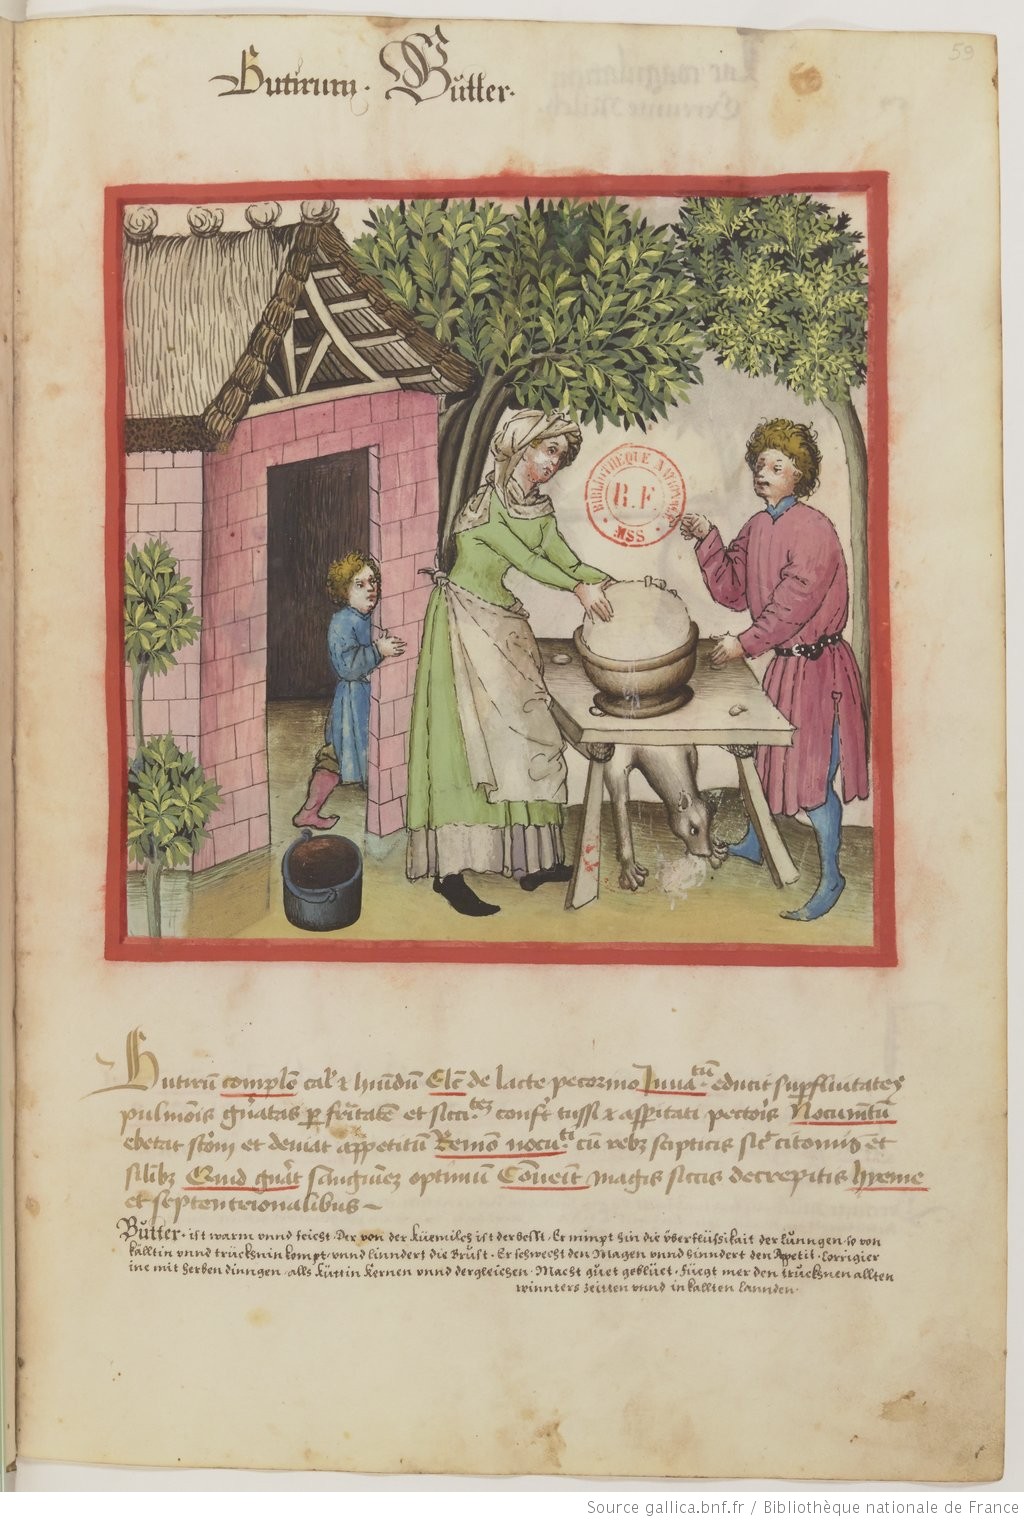 59
Butirum · Bůtter·
BIBLIOTHÈQUE NATIONALE
R.F.
MSS
Butirū complēo cal̄ ⁊ hūīdūm Elc̄ de lacte pecorino Juuatū educit supfluitates
pulmōis gn̄atas p fritatē et sicci conft tussi ⁊ aspitati pectoris Nocumtū
ebetat stōm et deuiat appetitū Remō nocuti cū rebz stipticis sic citoniis et
silibz Quid gnāt sanguinez optimū Cōueīt magis siccis decrepitis hyeme
et septentrionalibus
Bůtter · ist warm vnnd feicht · Der von der Küemilch ist der besst · Er nimpt hin die überflüssikait der lunngen · so von
källtin vnnd trücknin kompt · vnnd linndert die Brust · Er schwecht den Magen vnnd hinndert den Appetit · Corrigier
ine mit herben dinngen · alls Küttin Kernen vnnd dergleichen · Macht guet geblüet · Füegt mer den trucknen allten
winnters zeitten vnnd in kallten lannden ·
Source gallica.bnf.fr / Bibliothèque nationale de France